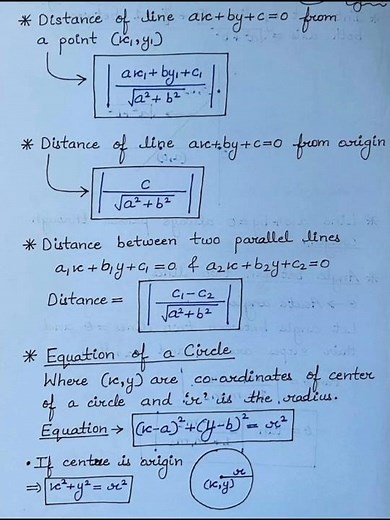 * Distance of line ax+by+c=0 from
a point (x₁,y₁)
| ax₁+by₁+c₁ / √a²+b² |.
* Distance of line ax+by+c=0 from origin
| c / √a²+b² |
* Distance between two parallel lines
a₁x+b₁y+c₁=0 & a₂x+b₂y+c₂=0
Distance = | c₁-c₂ / √a²+b² |
* Equation of a Circle
Where (x,y) are co-ordinates of center
of a circle and 'r' is the radius.
Equation → (x-a)²+(y-b)²=r²
• If centre is origin
⇒ x²+y²=r²
r
(x,y)